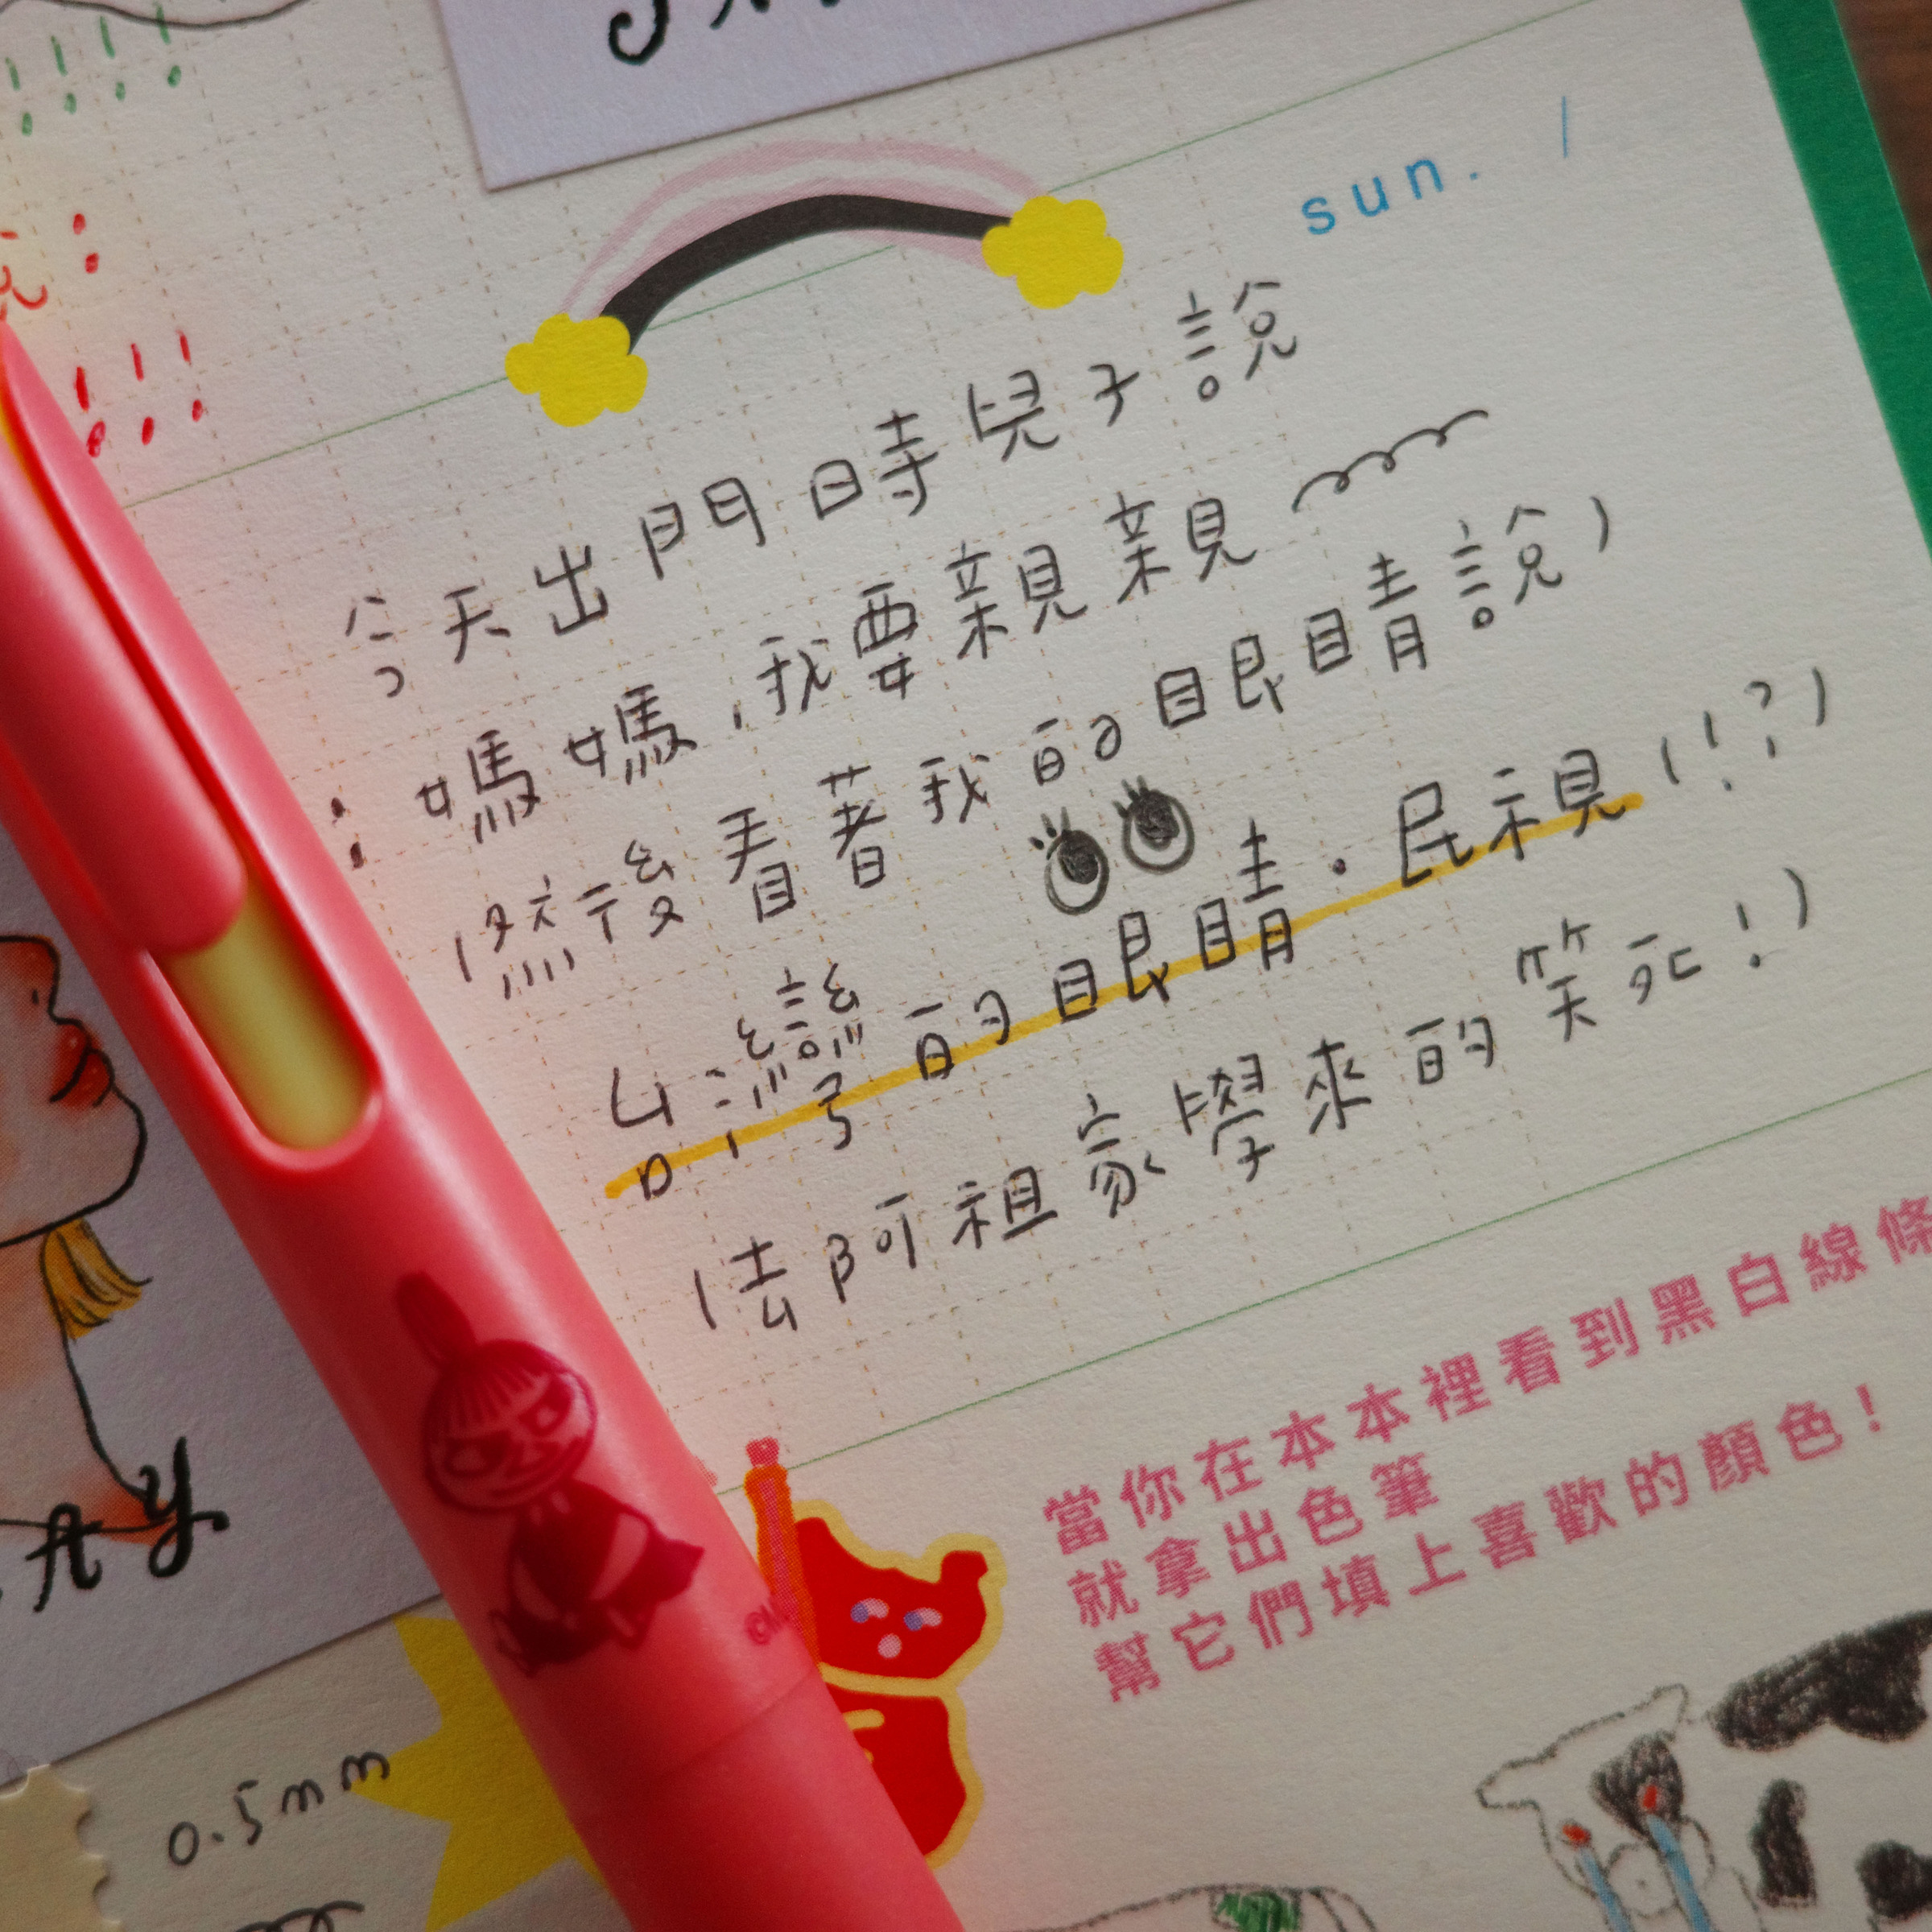 sun. /
今天出門時兒子說
:媽媽,我要親親
(然後看著我的眼睛說)
台灣的眼睛.民視(!?)
(去阿祖家學來的笑死!)
當你在本本裡看到黑白線條
就拿出色筆
幫它們填上喜歡的顏色!
Ay
0.5mm